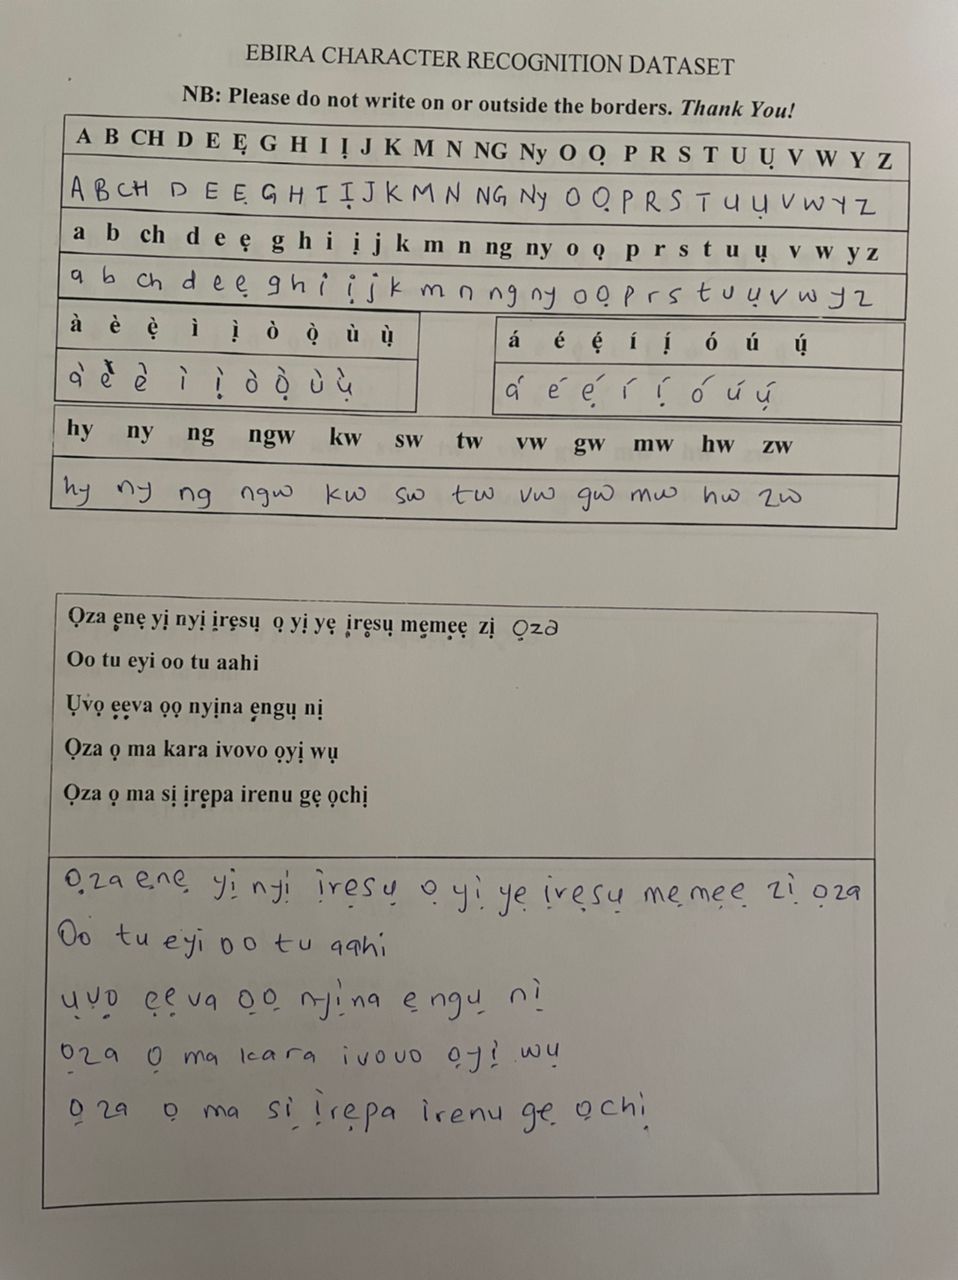 EBIRA CHARACTER RECOGNITION DATASET
NB: Please do not write on or outside the borders. Thank You!
A B CH D E Ẹ G H I Ị J K M N NG Ny O Ọ P R S T U Ụ V W Y Z
A B CH D E Ẹ G H I Ị J K M N NG Ny O Ọ P R S T U Ụ V W Y Z
a b ch d e ẹ g h i ị j k m n ng ny o ọ p r s t u ụ v w y z
a b ch d e ẹ g h i ị j k m n ng ny o ọ p r s t u ụ v w y z
à è ẹ̀ ì ị̀ ò ọ̀ ù ụ̀ á é ẹ́ í ị́ ó ú ụ́
à è ẹ̀ ì ị̀ ò ọ̀ ù ụ̀ á é ẹ́ í ị́ ó ú ụ́
hy ny ng ngw kw sw tw vw gw mw hw zw
hy ny ng ngw kw sw tw vw gw mw hw zw
Ọza ẹnẹ yị nyị ịrẹsụ ọ yị yẹ ịrẹsụ mẹmẹẹ zị ọza
Oo tu eyi oo tu aahi
Ụvọ ẹẹva ọọ nyịna ẹngụ nị
Ọza ọ ma kara ivovo ọyị wụ
Ọza ọ ma sị ịrẹpa irenu gẹ ọchị
Ọza ẹnẹ yị nyị ịrẹsụ ọ yị yẹ ịrẹsụ mẹmẹẹ zị ọza
Oo tu eyi oo tu aahi
ụvọ ẹẹva ọọ nyịna ẹngụ nị
ọza ọ ma kara ivovo ọyị wụ
ọza ọ ma sị ịrẹpa irenu gẹ ọchị